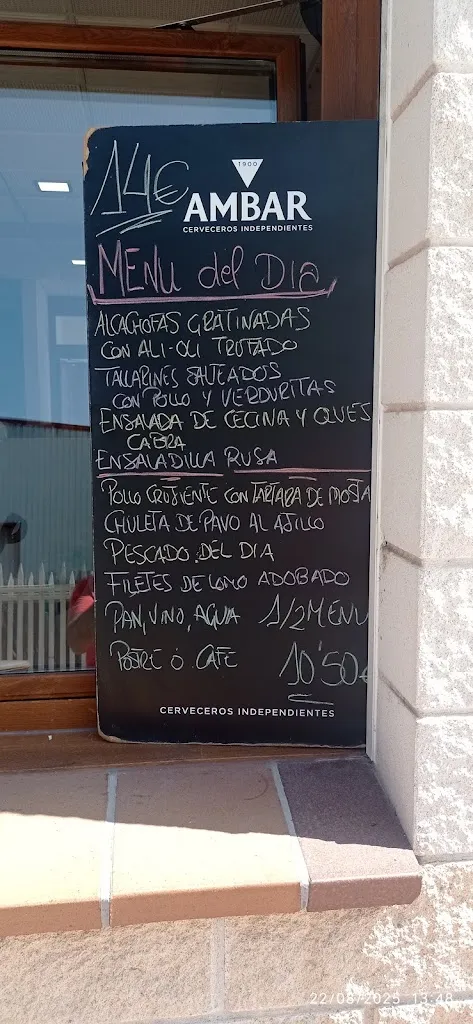 14€
1900
AMBAR
CERVECEROS INDEPENDIENTES
MENU del DIA
ALCACHOFAS GRATINADAS
CON ALI-OLI TRUFADO
TALLARINES SALTEADOS
CON POLLO Y VERDURITAS
ENSALADA DE CECINA Y QUES
CABRA
ENSALADILLA RUSA
POLLO CRUJIENTE CON TARTARA DE MOSTA
CHULETA DE PAVO AL AJILLO
PESCADO DEL DIA
FILETES DE LOMO ADOBADO
PAN, VINO, AGUA 1/2 MENU
POSTRE Ó CAFE 10'50€
CERVECEROS INDEPENDIENTES
22/08/2025 13:48